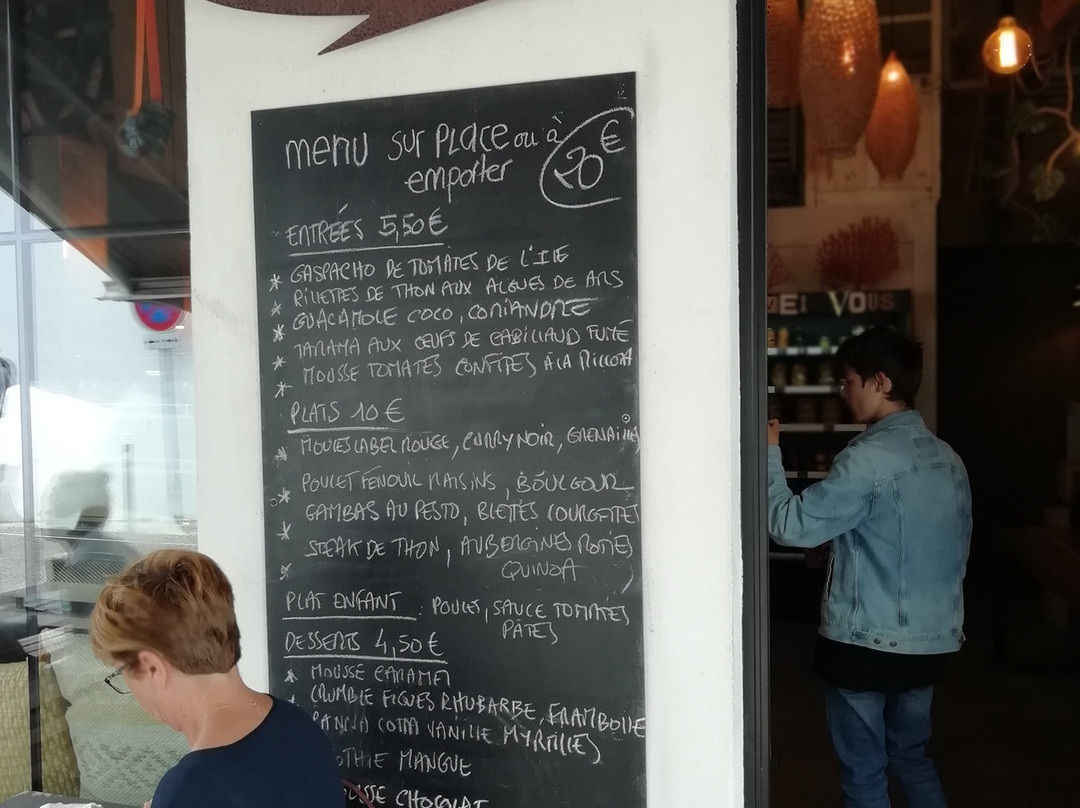 menu sur place ou à
emporter
20€
ENTRÉES 5,50€
* GASPACHO DE TOMATES DE L'ILE
* RILLETTES DE THON AUX ALGUES DE ARS
* GUACAMOLE COCO, CORIANDRE
* TARAMA AUX ŒUFS DE CABILLAUD FUMÉ
* MOUSSE TOMATES CONFITES À LA RICCOTA
PLATS 10€
* MOULES LABEL ROUGE, CURRY NOIR, GRENAILLES
* POULET FENOUIL RAISINS, BOULGOUR
* GAMBAS AU PESTO, BLETTES COURGETTES
* STEAK DE THON, AUBERGINES ROTIES
QUINOA
PLAT ENFANT : POULET, SAUCE TOMATES
PÂTES
DESSERTS 4,50€
* MOUSSE CARAMEL
CRUMBLE FIGUES RHUBARBE, FRAMBOISE
PANNA COTTA VANILLE MYRTILLES
OTHIE MANGUE
USSE CHOCOLAT
VOUS